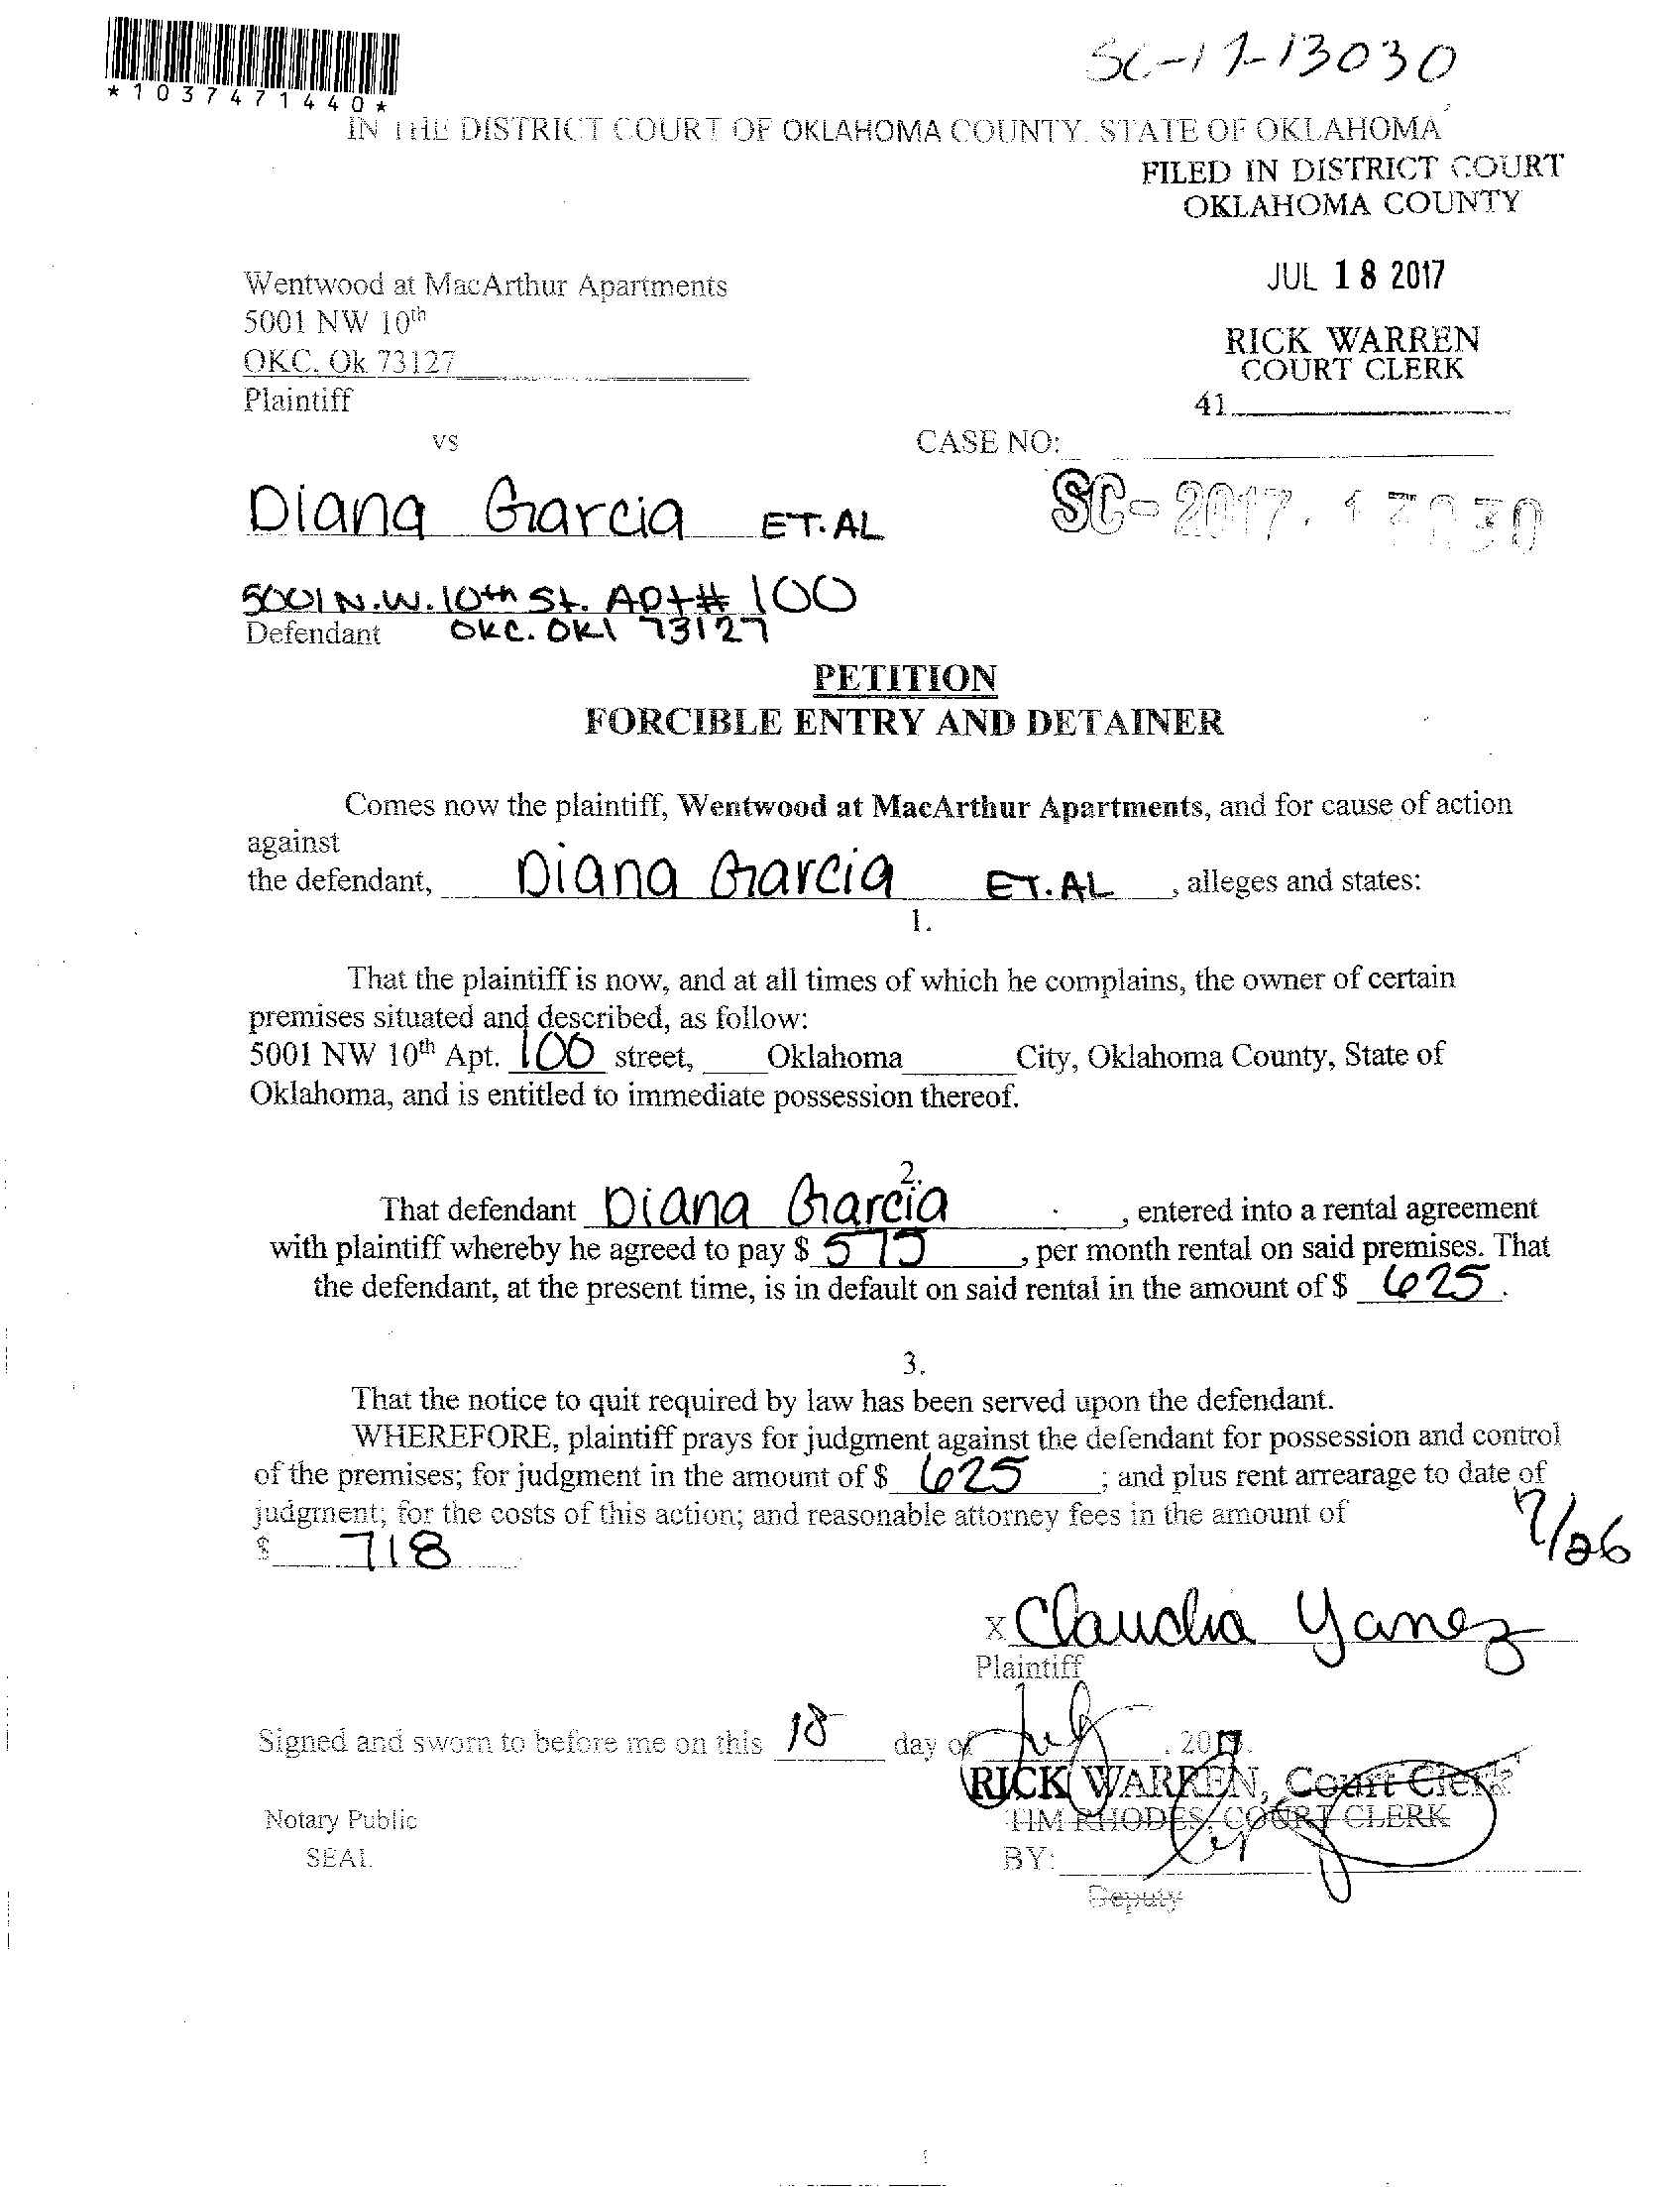 SC-17-13030
*1037471440*
IN THE DISTRICT COURT OF OKLAHOMA COUNTY, STATE OF OKLAHOMA
FILED IN DISTRICT COURT
OKLAHOMA COUNTY
JUL 18 2017
Wentwood at MacArthur Apartments
5001 NW 10th
OKC, Ok 73127
RICK WARREN
COURT CLERK
Plaintiff
41
vs
CASE NO:
Diana Garcia ET.AL
SC-2017-13030
5001 N.W. 10th St. Apt# 100
Defendant OKC. OKl 73127
PETITION
FORCIBLE ENTRY AND DETAINER
Comes now the plaintiff, Wentwood at MacArthur Apartments, and for cause of action
against
the defendant, Diana Garcia ET.AL , alleges and states:
1.
That the plaintiff is now, and at all times of which he complains, the owner of certain
premises situated and described, as follow:
5001 NW 10th Apt. 100 street, Oklahoma City, Oklahoma County, State of
Oklahoma, and is entitled to immediate possession thereof.
2.
That defendant Diana Garcia , entered into a rental agreement
with plaintiff whereby he agreed to pay $ 575 , per month rental on said premises. That
the defendant, at the present time, is in default on said rental in the amount of $ 625 .
3.
That the notice to quit required by law has been served upon the defendant.
WHEREFORE, plaintiff prays for judgment against the defendant for possession and control
of the premises; for judgment in the amount of $ 625 ; and plus rent arrearage to date of
judgment; for the costs of this action; and reasonable attorney fees in the amount of
$ 718
7/26
x Claudia Yanez
Plaintiff
Signed and sworn to before me on this 18 day of July , 2017.
RICK WARREN, Court Clerk
Notary Public
TIM RHODES, COURT CLERK
SEAL
BY:
Deputy